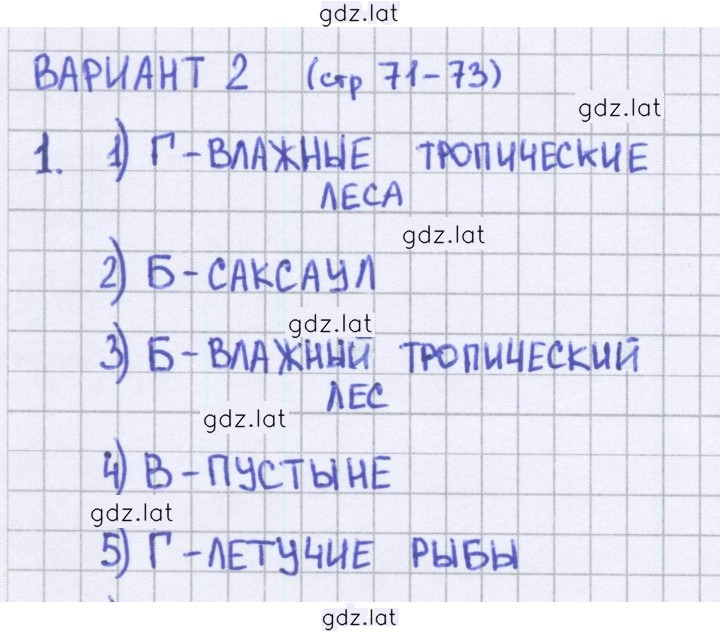 gdz.lat
ВАРИАНТ 2 (стр 71-73)
gdz.lat
1. 1) Г - ВЛАЖНЫЕ ТРОПИЧЕСКИЕ
ЛЕСА
gdz.lat
2) Б - САКСАУЛ
gdz.lat
3) Б - ВЛАЖНЫЙ ТРОПИЧЕСКИЙ
ЛЕС
gdz.lat
4) В - ПУСТЫНЕ
gdz.lat
5) Г - ЛЕТУЧИЕ РЫБЫ
gdz.lat